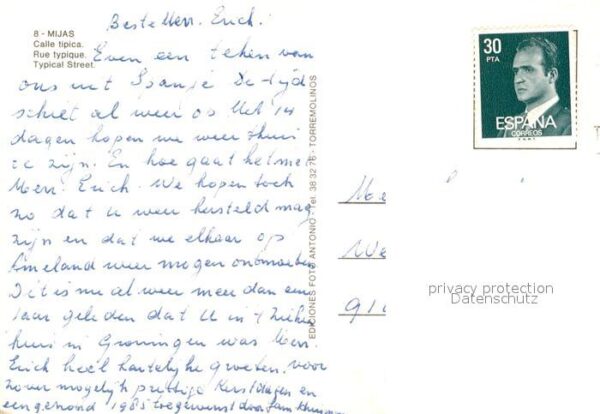 Beste Mevr. Erich.
8 - MIJAS
Calle típica.
Rue typique.
Typical Street.
Even een teken van
ons uit Spanje de tijd
schiet al weer op Met 14
dagen hopen we weer thuis
te zijn. En hoe gaat het met
Mevr. Erich. We hopen toch
zo dat U weer hersteld mag
zijn en dat we elkaar op
Ameland weer mogen ontmoeten
Dit is nu al weer meer dan een
Jaar geleden dat U in 't Zieken
huis in Groningen was Mevr.
Erich heel hartelijke groeten, voor
zover mogelijk prettige Kerstdagen en
een gezond 1985 toegewenst door fam
EDICIONES FOTO ANTONIO - Tel. 383276 - TORREMOLINOS
30
PTA
ESPAÑA
CORREOS
Me
We
91
privacy protection
Datenschutz